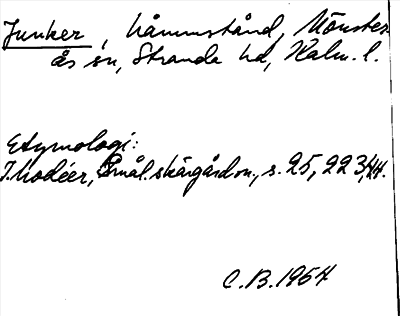 Junker, håmmstånd, Mönster
ås sn, Stranda hd, Kalm. l.
Etymologi:
I. Modéer, Smål. skärgårdsn., s. 25, 223,
C.B. 1964